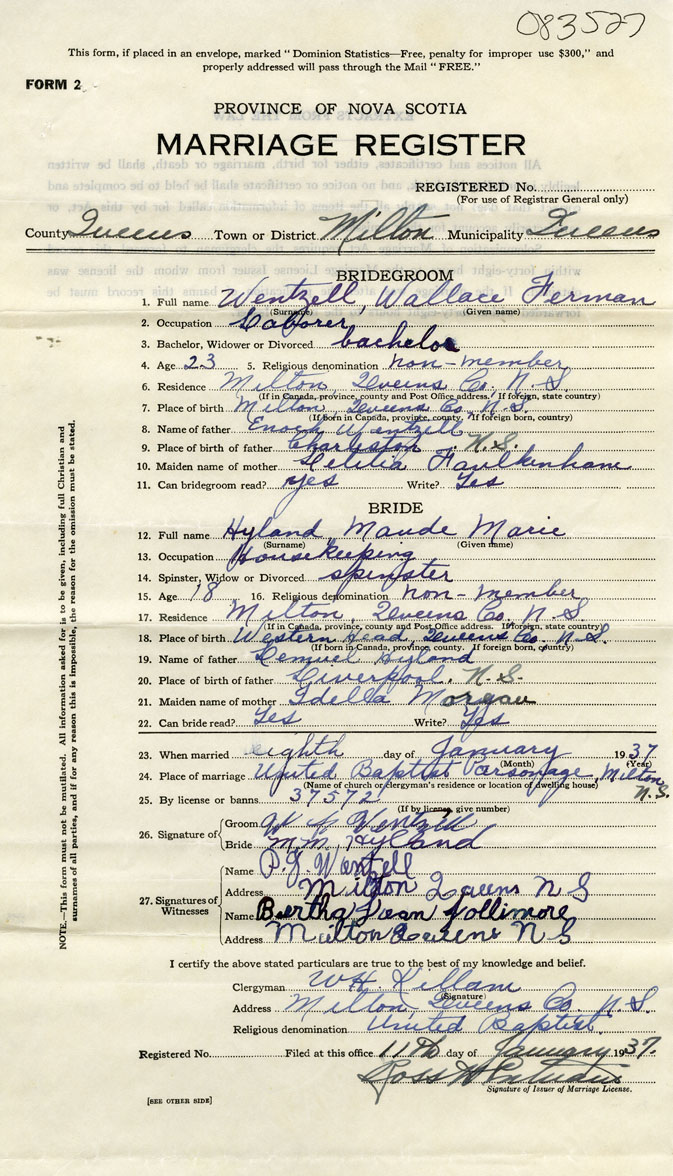 083527
This form, if placed in an envelope, marked "Dominion Statistics—Free, penalty for improper use $300," and
properly addressed will pass through the Mail "FREE."
FORM 2
PROVINCE OF NOVA SCOTIA
MARRIAGE REGISTER
REGISTERED No.
(For use of Registrar General only)
County Queens Town or District Milton Municipality Queens
BRIDEGROOM
1. Full name Wentzell, Wallace Ferman
(Surname) (Given name)
2. Occupation Laborer
3. Bachelor, Widower or Divorced bachelor
4. Age 23 5. Religious denomination non-member
6. Residence Milton Queens Co. N.S.
(If in Canada, province, county and Post Office address. If foreign, state country)
7. Place of birth Milton, Queens Co. N.S.
(If born in Canada, province, county. If foreign born, country)
8. Name of father Enoch Wentzell
9. Place of birth of father Charleston N.S.
10. Maiden name of mother Letitia Faulkenham
11. Can bridegroom read? yes Write? Yes
BRIDE
12. Full name Hyland Maude Marie
(Surname) (Given name)
13. Occupation Housekeeping
14. Spinster, Widow or Divorced spinster
15. Age 18 16. Religious denomination non-member
17. Residence Milton, Queens Co. N.S.
(If in Canada, province, county and Post Office address. If foreign, state country)
18. Place of birth Western Head, Queens Co. N.S.
(If born in Canada, province, county. If foreign born, country)
19. Name of father Lemuel Hyland
20. Place of birth of father Liverpool, N.S.
21. Maiden name of mother Idella Morgan
22. Can bride read? Yes Write? Yes
23. When married eighth day of January 1937
(Month) (Year)
24. Place of marriage United Baptist Parsonage, Milton
N.S.
(Name of church or clergyman's residence or location of dwelling house)
25. By license or banns 37572
(If by license, give number)
26. Signature of
Groom W Wentzell
Bride M.M. Hyland
27. Signatures of Witnesses
Name P. Wentzell
Address Milton Queens N S
Name Bertha Jean Vollimore
Address Milton Queens N S
I certify the above stated particulars are true to the best of my knowledge and belief.
Clergyman W.H. Killam
(Signature)
Address Milton, Queens Co. N.S.
Religious denomination United Baptist.
Registered No. Filed at this office 11th day of January 1937.
Ross
Signature of Issuer of Marriage License.
[SEE OTHER SIDE]
NOTE.—This form must not be mutilated. All information asked for is to be given, including full Christian and
surnames of all parties, and if for any reason this is impossible, the reason for the omission must be stated.